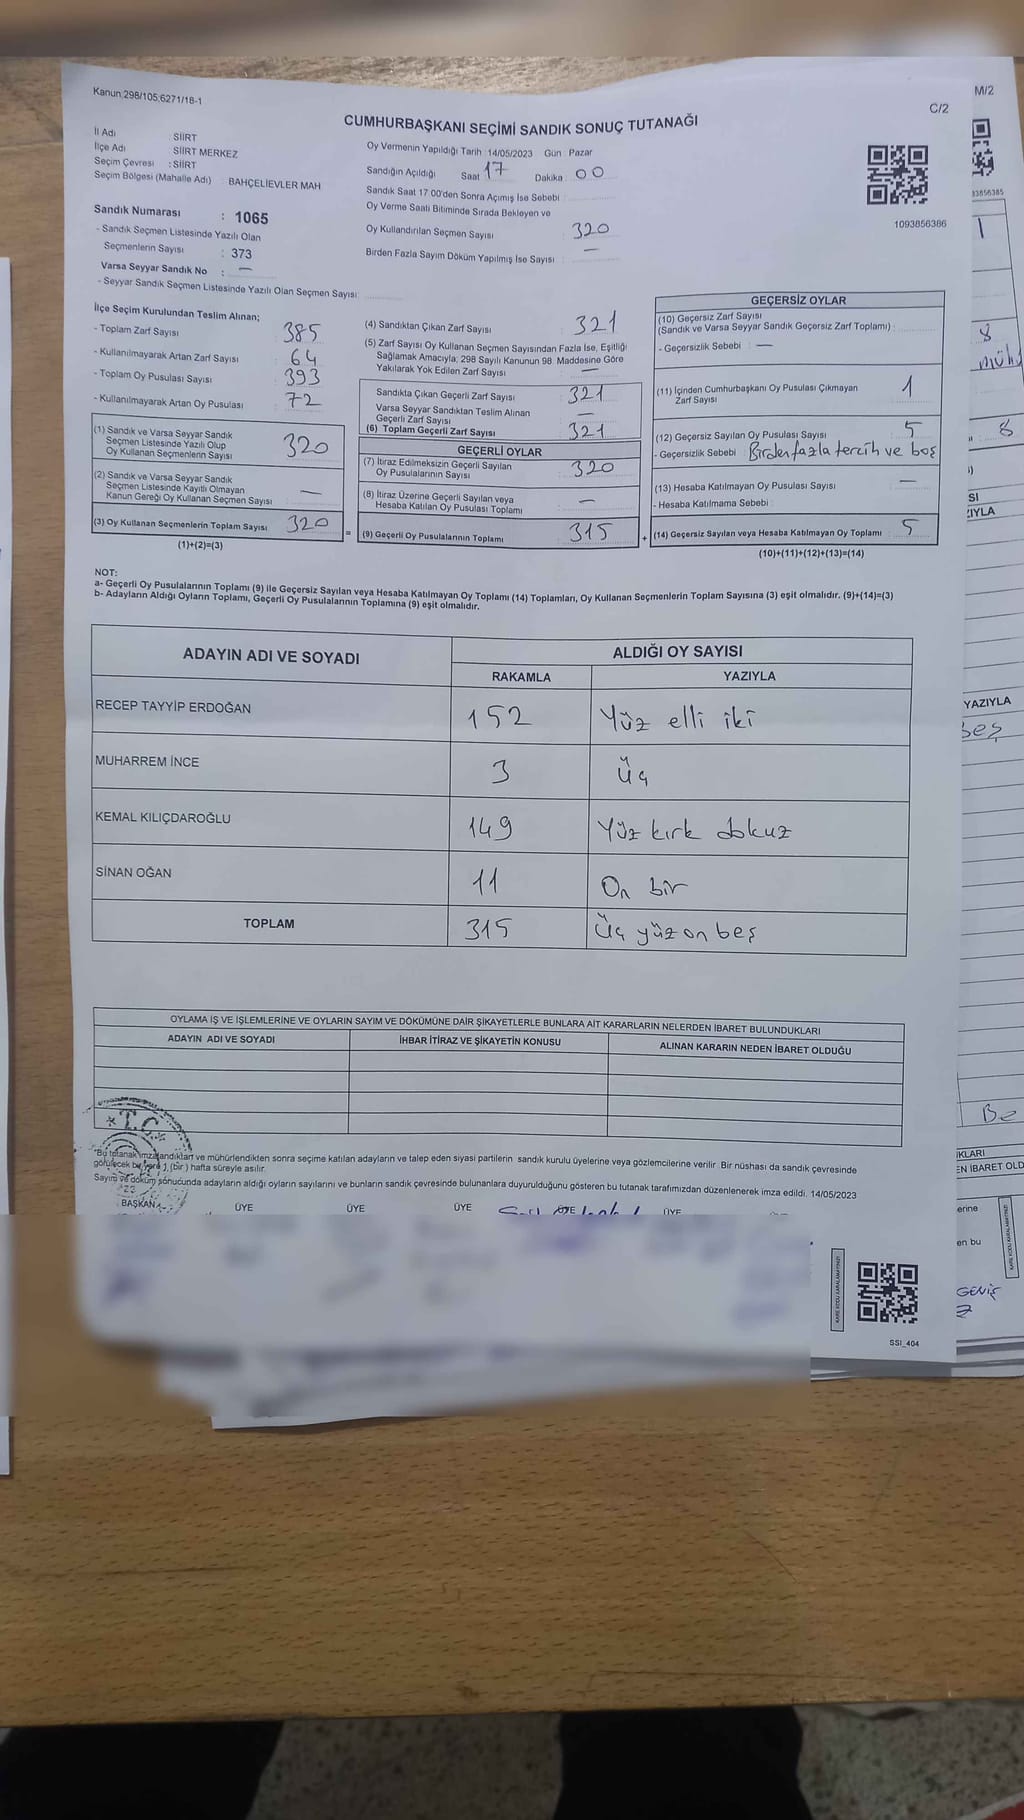 Kanun:298/105,6271/18-1
C/2
CUMHURBAŞKANI SEÇİMİ SANDIK SONUÇ TUTANAĞI
İl Adı SİİRT
İlçe Adı SİİRT MERKEZ
Seçim Çevresi : SİİRT
Seçim Bölgesi (Mahalle Adı) BAHÇELİEVLER MAH
Sandık Numarası : 1065
- Sandık Seçmen Listesinde Yazılı Olan
Seçmenlerin Sayısı : 373
Varsa Seyyar Sandık No : —
- Seyyar Sandık Seçmen Listesinde Yazılı Olan Seçmen Sayısı
Oy Vermenin Yapıldığı Tarih :14/05/2023 Gün : Pazar
Sandığın Açıldığı Saat 17 Dakika 00
Sandık Saat 17:00'den Sonra Açımış İse Sebebi
Oy Verme Saati Bitiminde Sırada Bekleyen ve
Oy Kullandırılan Seçmen Sayısı 320
Birden Fazla Sayım Döküm Yapılmış İse Sayısı —
1093856386
İlçe Seçim Kurulundan Teslim Alınan;
- Toplam Zarf Sayısı 385
- Kullanılmayarak Artan Zarf Sayısı 64
- Toplam Oy Pusulası Sayısı 393
- Kullanılmayarak Artan Oy Pusulası 72
(1) Sandık ve Varsa Seyyar Sandık
Seçmen Listesinde Yazılı Olup
Oy Kullanan Seçmenlerin Sayısı 320
(2) Sandık ve Varsa Seyyar Sandık
Seçmen Listesinde Kayıtlı Olmayan
Kanun Gereği Oy Kullanan Seçmen Sayısı —
(3) Oy Kullanan Seçmenlerin Toplam Sayısı 320
(1)+(2)=(3)
(4) Sandıktan Çıkan Zarf Sayısı 321
(5) Zarf Sayısı Oy Kullanan Seçmen Sayısından Fazla İse, Eşitliği
Sağlamak Amacıyla; 298 Sayılı Kanunun 98. Maddesine Göre
Yakılarak Yok Edilen Zarf Sayısı —
Sandıkta Çıkan Geçerli Zarf Sayısı 321
Varsa Seyyar Sandıktan Teslim Alınan
Geçerli Zarf Sayısı —
(6) Toplam Geçerli Zarf Sayısı 321
GEÇERLİ OYLAR
(7) İtiraz Edilmeksizin Geçerli Sayılan
Oy Pusulalarının Sayısı 320
(8) İtiraz Üzerine Geçerli Sayılan veya
Hesaba Katılan Oy Pusulası Toplamı —
= (9) Geçerli Oy Pusulalarının Toplamı 315
GEÇERSİZ OYLAR
(10) Geçersiz Zarf Sayısı
(Sandık ve Varsa Seyyar Sandık Geçersiz Zarf Toplamı)
- Geçersizlik Sebebi : —
(11) İçinden Cumhurbaşkanı Oy Pusulası Çıkmayan
Zarf Sayısı 1
(12) Geçersiz Sayılan Oy Pusulası Sayısı 5
- Geçersizlik Sebebi Birden fazla tercih ve boş
(13) Hesaba Katılmayan Oy Pusulası Sayısı —
- Hesaba Katılmama Sebebi
+ (14) Geçersiz Sayılan veya Hesaba Katılmayan Oy Toplamı 5
(10)+(11)+(12)+(13)=(14)
NOT:
a- Geçerli Oy Pusulalarının Toplamı (9) ile Geçersiz Sayılan veya Hesaba Katılmayan Oy Toplamı (14) Toplamları, Oy Kullanan Seçmenlerin Toplam Sayısına (3) eşit olmalıdır. (9)+(14)=(3)
b- Adayların Aldığı Oyların Toplamı, Geçerli Oy Pusulalarının Toplamına (9) eşit olmalıdır.
ADAYIN ADI VE SOYADI ALDIĞI OY SAYISI
RAKAMLA YAZIYLA
RECEP TAYYİP ERDOĞAN 152 Yüz elli iki
MUHARREM İNCE 3 Üç
KEMAL KILIÇDAROĞLU 149 Yüz kırk dokuz
SİNAN OĞAN 11 On bir
TOPLAM 315 Üç yüz on beş
OYLAMA İŞ VE İŞLEMLERİNE VE OYLARIN SAYIM VE DÖKÜMÜNE DAİR ŞİKAYETLERLE BUNLARA AİT KARARLARIN NELERDEN İBARET BULUNDUKLARI
ADAYIN ADI VE SOYADI İHBAR İTİRAZ VE ŞİKAYETİN KONUSU ALINAN KARARIN NEDEN İBARET OLDUĞU
T.C.
*Bu tutanak imzalandıktan ve mühürlendikten sonra seçime katılan adayların ve talep eden siyasi partilerin sandık kurulu üyelerine veya gözlemcilerine verilir. Bir nüshası da sandık çevresinde
görülecek bir yere 1 (bir) hafta süreyle asılır.
Sayım ve döküm sonucunda adayların aldığı oyların sayılarını ve bunların sandık çevresinde bulunanlara duyurulduğunu gösteren bu tutanak tarafımızdan düzenlenerek imza edildi. 14/05/2023
BAŞKAN ÜYE ÜYE ÜYE ÜYE ÜYE
SSI_404
M/2
93856385
1
8
8
SI
ZIYLA
YAZIYLA
beş
Be
KLARI
EN İBARET OLD
erine
en bu
GENİŞ